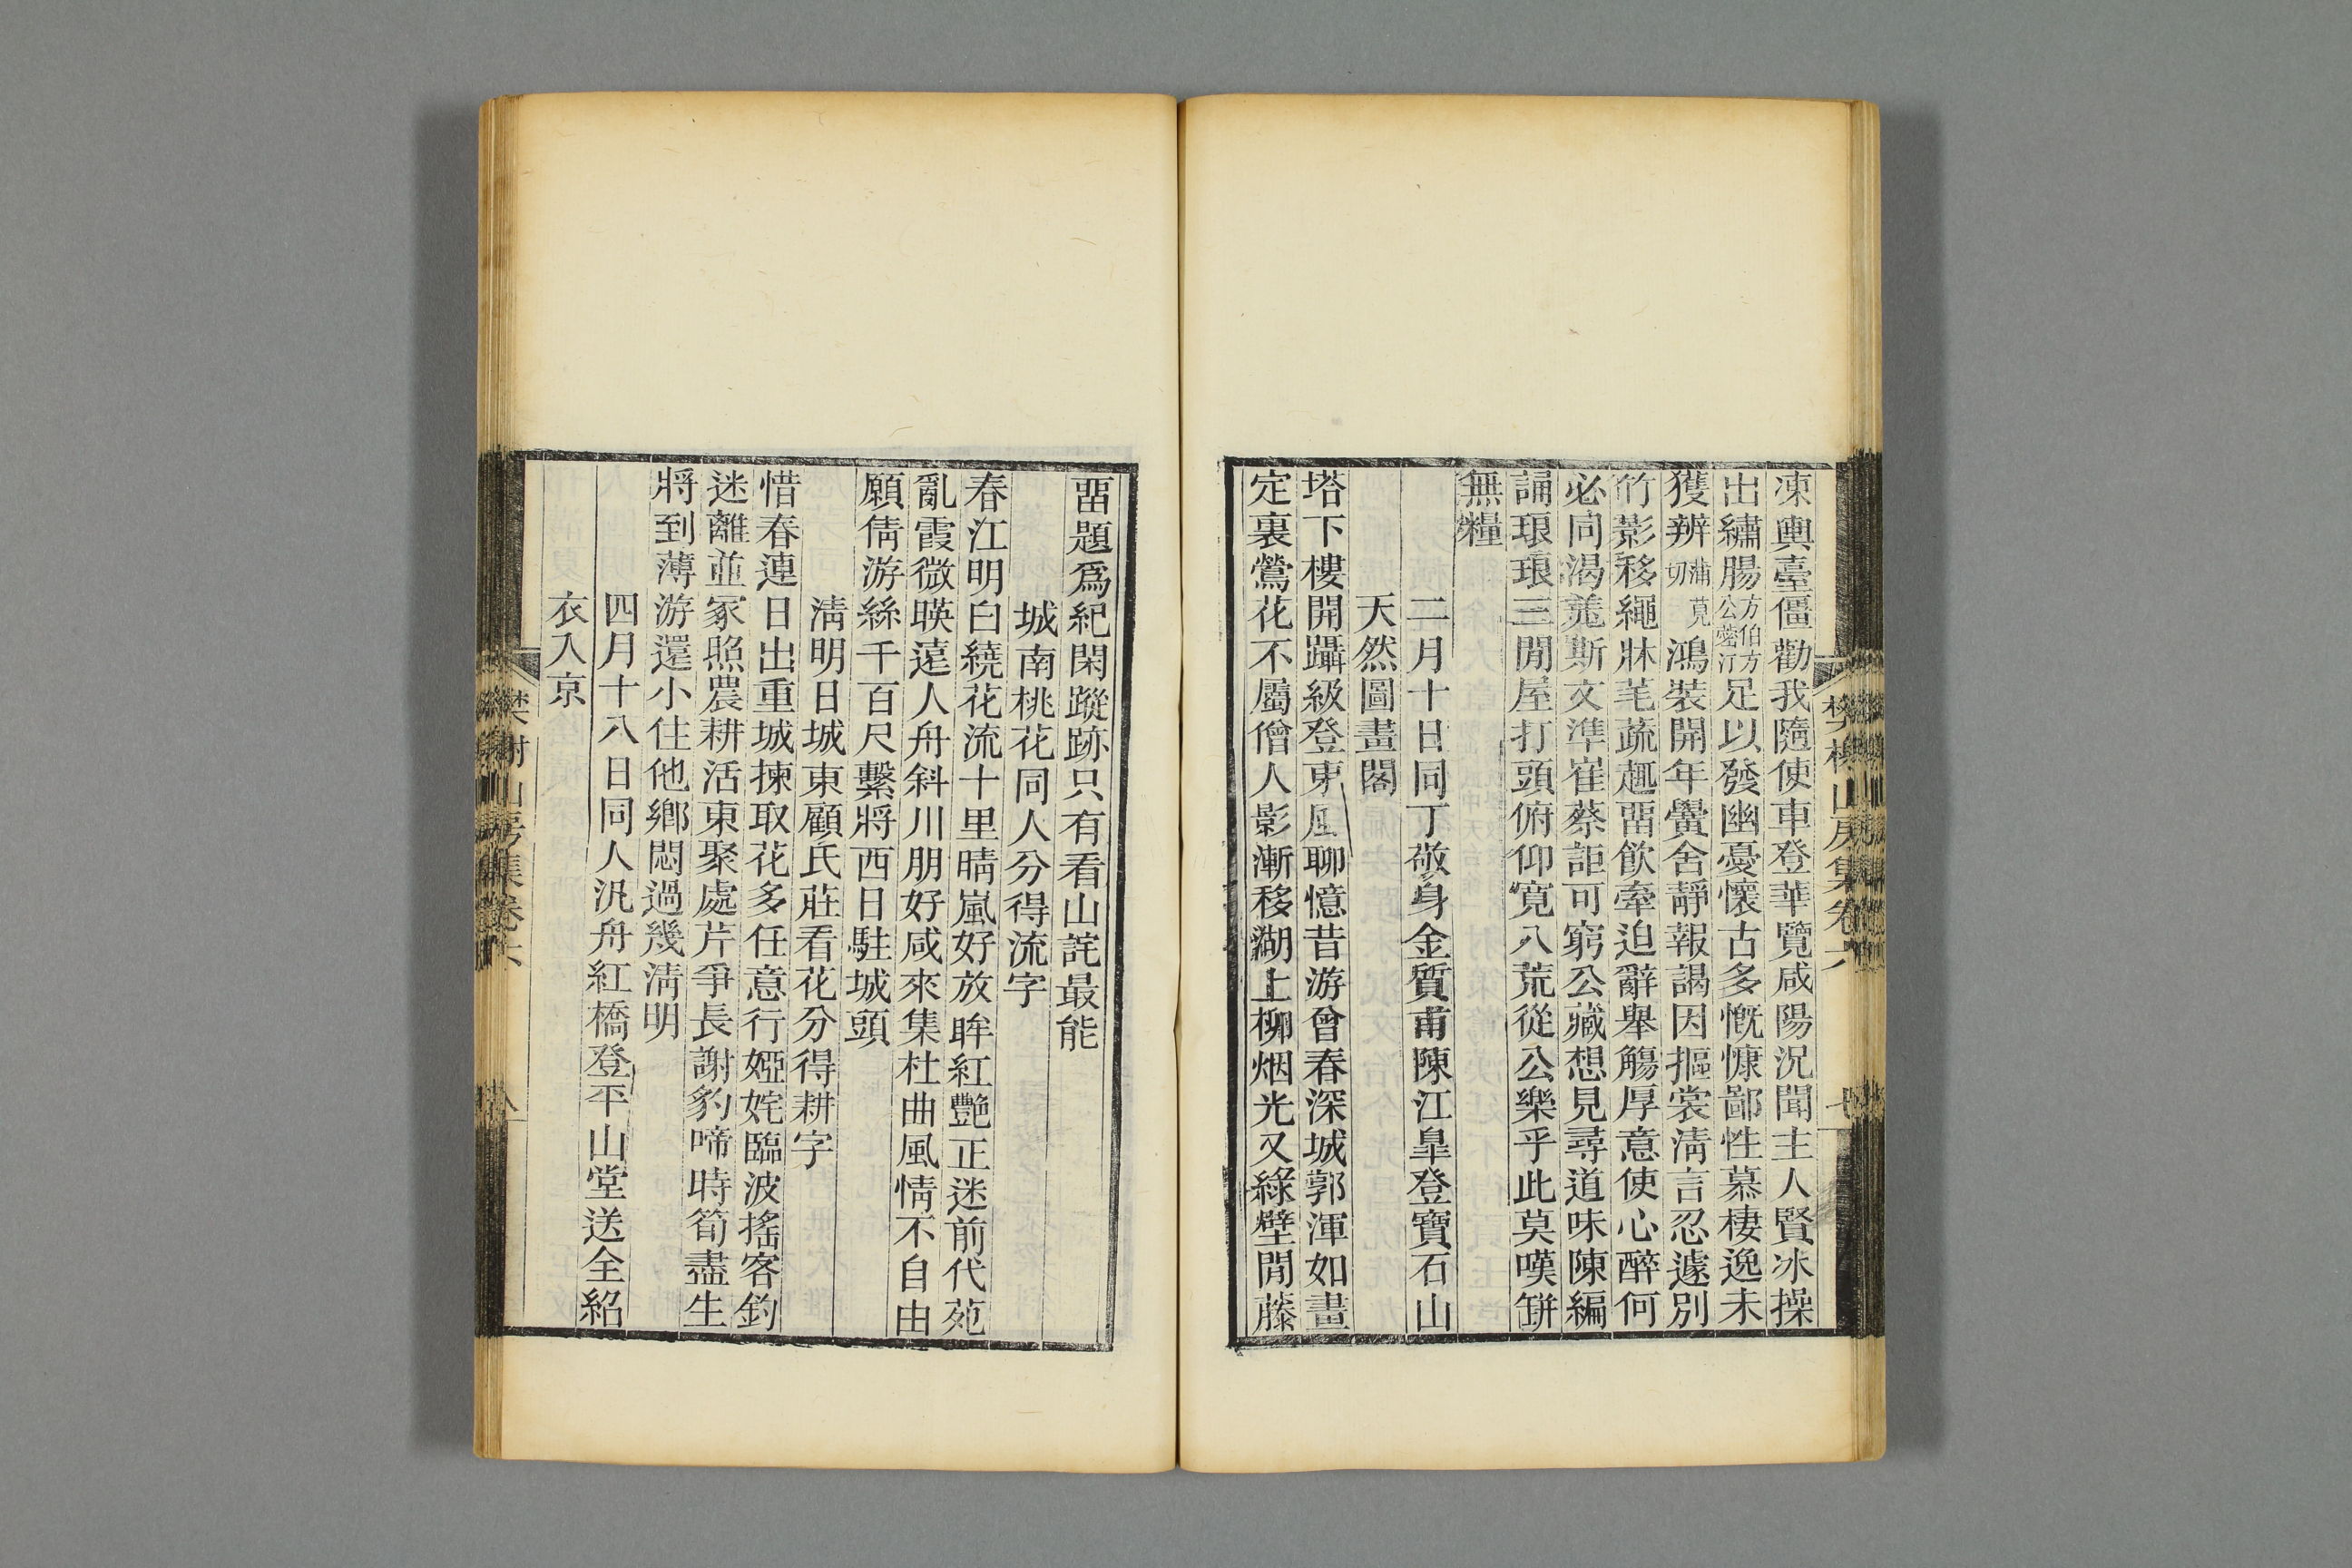 凍輿臺僵勸我隨使車登華覽咸陽況聞主人賢冰操
出繡腸方伯方公蓥汀足以發幽憂懷古多慨慷鄙性慕棲逸未
獲辨蒲莧切鴻裝開年黌舍靜報謁因摳裳淸言忍遽別
竹影移繩牀芼蔬輒畱飮牽迫辭舉觴厚意使心醉何
必同渴羗斯文準崔蔡詎可窮公藏想見尋道味陳編
誦琅琅三閒屋打頭俯仰寛八荒從公樂乎此莫嘆缾
無糧
二月十日同丁敬身金質甫陳江臯登寶石山
天然圖畫閣
塔下樓開躡級登東風聊憶昔游曾春深城郭渾如畫
定裏鶯花不屬僧人影漸移湖上柳烟光又綠壁閒藤
樊榭山房集卷六
七
畱題爲紀閑蹤跡只有看山詫最能
城南桃花同人分得流字
春江明白繞花流十里晴嵐好放眸紅艷正迷前代苑
亂霞微暎遠人舟斜川朋好咸來集杜曲風情不自由
願倩游絲千百尺繫將西日駐城頭
淸明日城東顧氏莊看花分得耕字
惜春連日出重城揀取花多任意行婭姹臨波搖客釣
迷離並冢照農耕活東聚處芹爭長謝豹啼時筍盡生
將到薄游還小住他鄉悶過幾淸明
四月十八日同人汎舟紅橋登平山堂送全紹
衣入京
樊榭山房集卷六
八